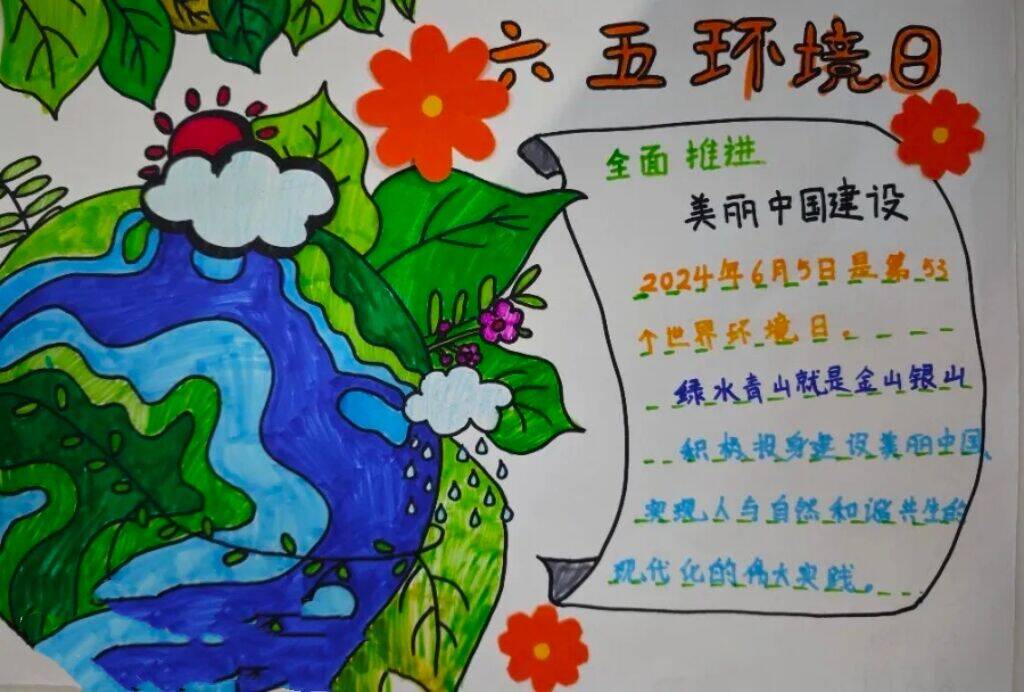 六五环境日
全面推进
美丽中国建设
2024年6月5日是第53
个世界环境日。
绿水青山就是金山银山
积极投身建设美丽中国、
实现人与自然和谐共生的
现代化的伟大实践。